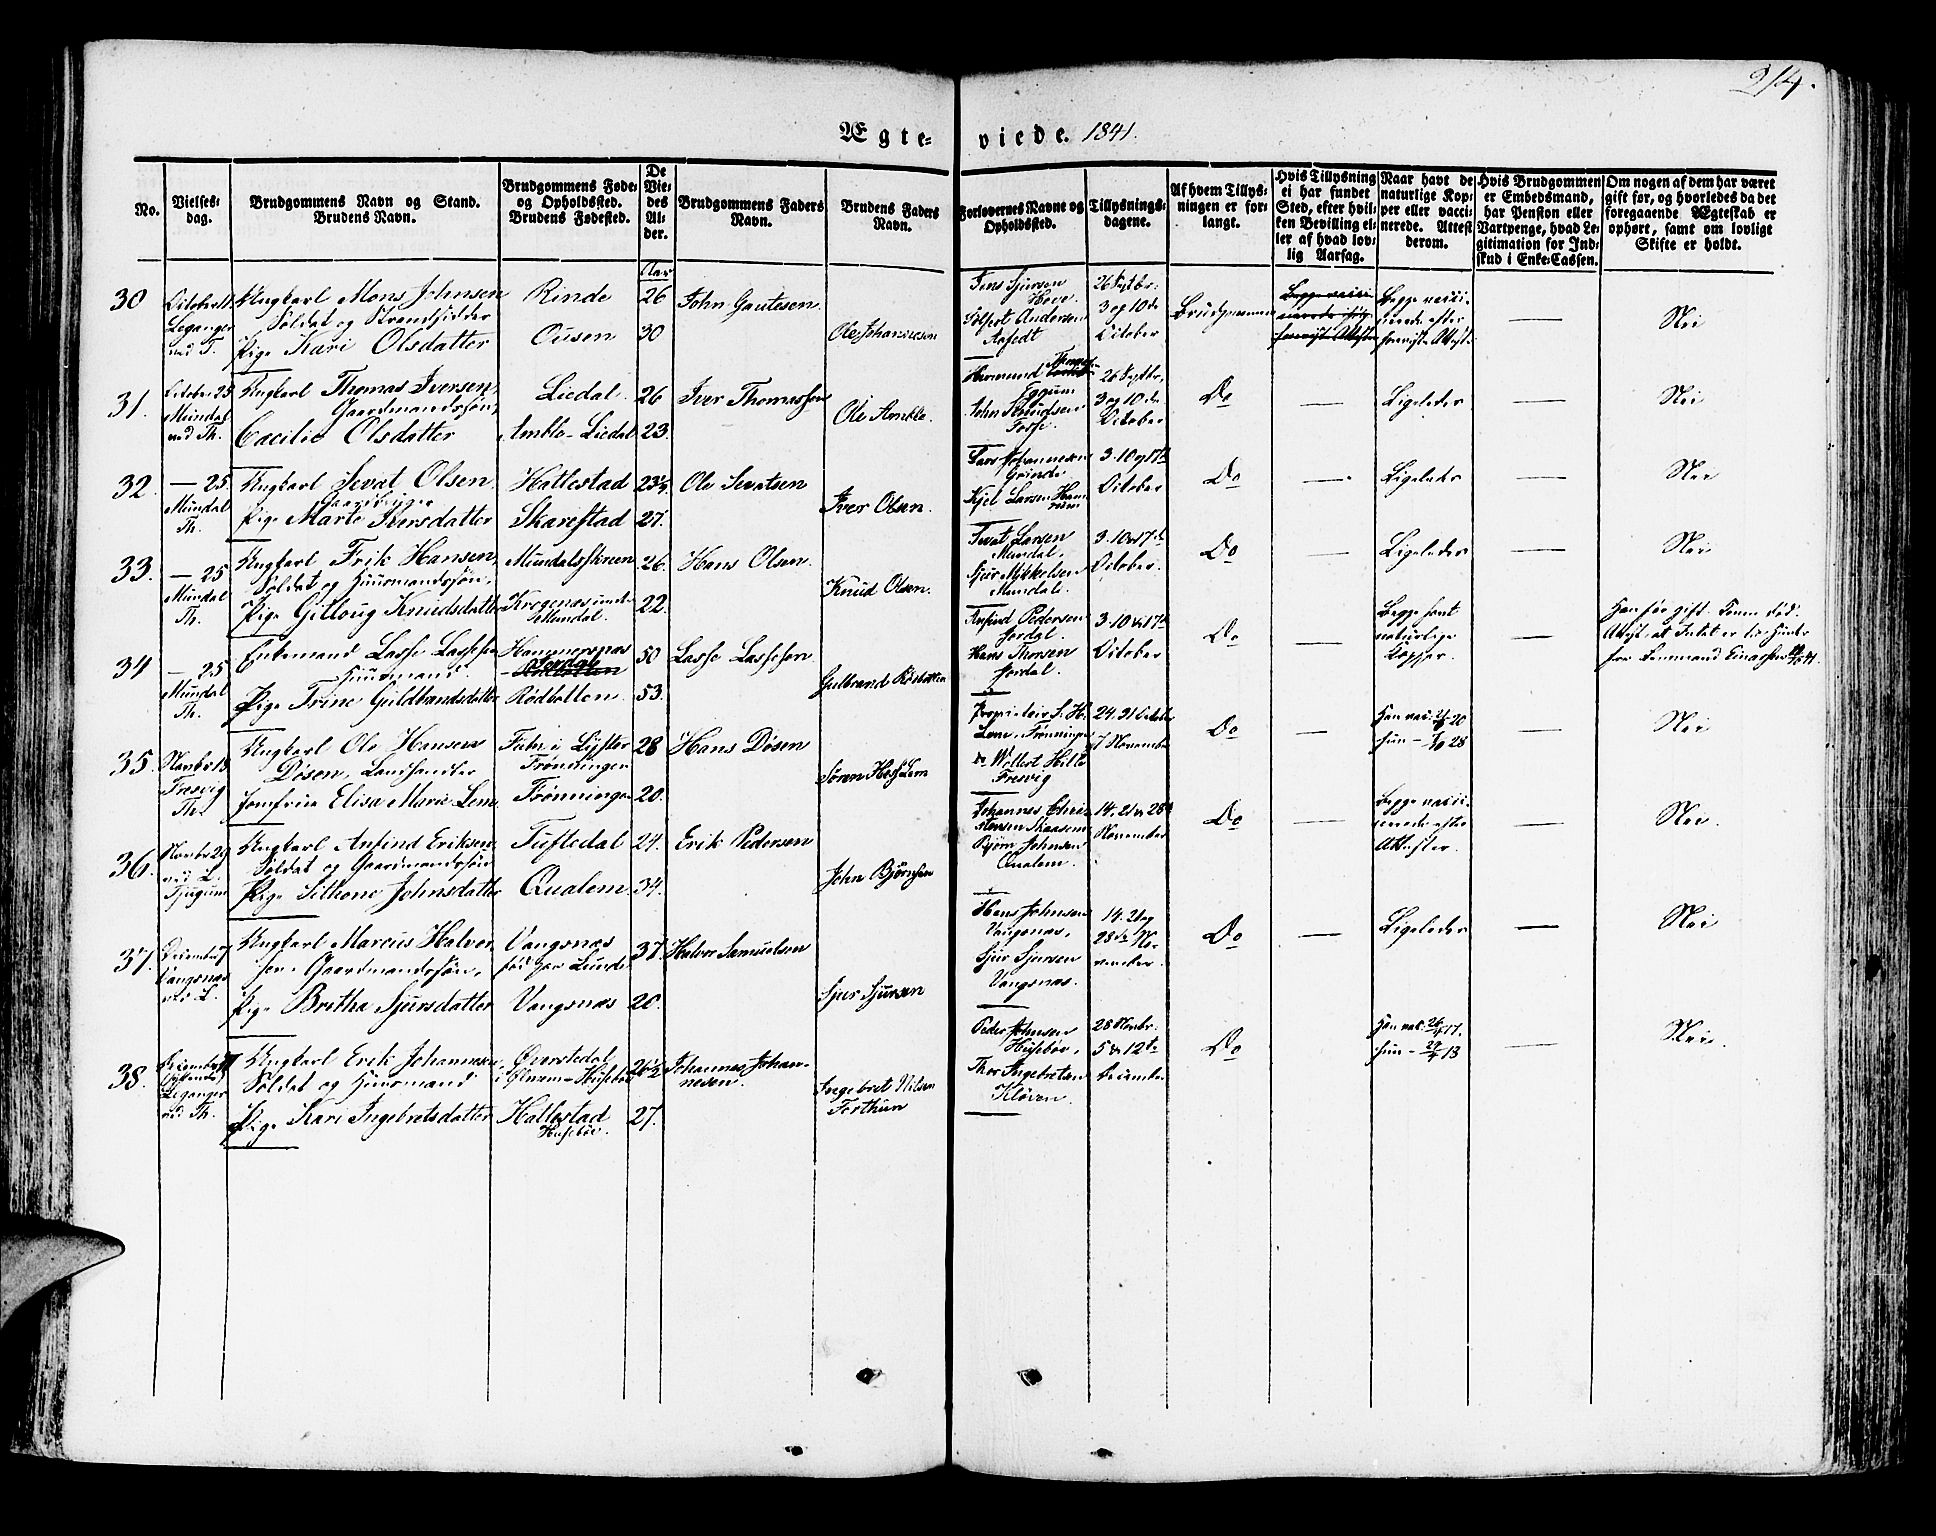 214.
Ægte-viede. 1841.
No.
Vielses-
dag.
Brudgommens Navn og Stand.
Brudens Navn.
Brudgommens Føde-
og Opholdssted.
Brudens Fødested.
De
Vie-
des
Al-
der.
Brudgommens Faders
Navn.
Brudens Faders
Navn.
Forlovernes Navne og
Opholdssted.
Tillysnings-
dagene.
Af hvem Tillys-
ningen er for-
langt.
Hvis Tillysning
ei har fundet
Sted, efter hvil-
ken Bevilling el-
ler af hvad lov-
lig Aarsag.
Naar havt de
naturlige Kop-
per eller vacci-
nerede. Attest
derom.
Hvis Brudgommen
er Embedsmand,
har Pension eller
Vartpenge, hvad Le-
gitimation for Ind-
skud i Enke-Cassen.
Om nogen af dem har været
gift før, og hvorledes da det
foregaaende Ægteskab er
ophørt, samt om lovligt
Skifte er holdt.
Aar
30
October 11
Leganger
ved T.
Ungkarl Mons Johnsen
Soldat og Strandsidder
Pige Kari Olsdatter
Rinde
Ousen
26
30
John Gautesen
Ole Johannesen
Jens Sjursen
Hove
Andersen
26 Septbr.
3 og 10de
October
Brudgommen
Begge vacci-
nerede efter
foreviste Attester
Nei
31.
October 25
Mundal
ved Th.
Ungkarl Thomas Iversen,
Gaardmandssøn,
Cacilie Olsdatter
Liedal
Amble-Liedal
26
23.
Iver Thomassen
Ole Amble
Hermund
Eggum
John Knudsen
Fosse
26 Septbr,
3 og 10de
October
Do
Ligeledes
Nei
32.
— 25
Mundal
Th.
Ungkarl Sevat Olsen
Pige Marte Iversdatter
Hattestad
Skarestad
23½
27.
Ole Sevatsen
Iver Olsen.
Lars Johannesen
Grinde
Kjel Larsen Ham-
rum
3. 10 og 17de
October
Do
Ligeledes
Nei
33.
— 25
Mundal
Th.
Ungkarl Erik Hansen,
Soldat og Huusmandssøn,
Pige Gitloug Knudsdatter
Mundalsskreen
Krogenæs under
Mundal.
26.
22.
Hans Olsen
Knud Olsen.
Sevat Larsen
Mundal,
Sjur Mikkelsen
Mundal.
3. 10 og 17de
October.
Do
Ligeledes
Nei
34
— 25
Mundal
Th.
Enkemand Lasse Lassesen
Huusmand.
Pige Trine Guldbrandsdatter
Hammersnæs
Jordal
Rødbotten
Rødbotten.
50
53.
Lasse Lassesen
Gulbrand Rødbotten
Anfind Pedersen
Jordal,
Hans Thorsen
Jordal.
3. 10 & 17de
October
Do
Begge havt
naturlige
Kopper.
Han før gift. Konen død.
Attest, at Intet er til Hinder
fra Lensmand Einarsen 41.
35.
Novbr 13
Fresvig
Th.
Ungkarl Ole Hansen
Døsen, Landhandler
Jomfrue Elisa Marie Lem
i Lyster
Frønningen
Frønningen
28
20.
Hans Døsen
Søren Hos Lem
Proprietair S. H.
Lem, Frønningen
Wollert Hille
Fresvig
24. 31 October
7 November
Do
Han vac. 20
hun — 28
Nei
36.
Novbr 29
ved L.
Tjugum
Ungkarl Anfind Eriksen,
Soldat og Gaardmandssøn
Pige Sithone Johnsdatter
Tuftedal
Qualem
24.
34.
Erik Pedersen
John Bjørnsen
Johannes Chri-
stensen Skaasem
Bjørn Johnsen
Qualem.
14. 21 & 28de
November
Do
Begge vacci-
nerede efter
Attester.
Nei.
37.
December 7
Vangsnæs
ved L.
Ungkarl Marcus Halvor-
sen, Gaardmandssøn,
Pige Britha Sjursdatter
Vangsnæs
født paa Lunde
Vangsnæs
37.
20.
Halvor Samuelsen
Sjur Sjursen
Hans Johnsen
Vangsnæs,
Sjur Sjursen
Vangsnæs.
14. 21 og
28de No-
vember.
Do
Ligeledes
Nei
38.
December
Leganger
ved Th.
Ungkarl Erik Johannesen
Soldat og Huusmand
Pige Kari Ingebretsdatter
Øvrestedal
Hattestad
Husebøe.
26½
27.
Johannes Johan-
nesen.
Ingebret Nilsen
Forthun
Peder Johnsen
Husebøe,
Thor Ingebretsen
Kløven.
28 Novbr.
5 & 12te
December
Do
Han vac. 17.
hun — 13
Nei.